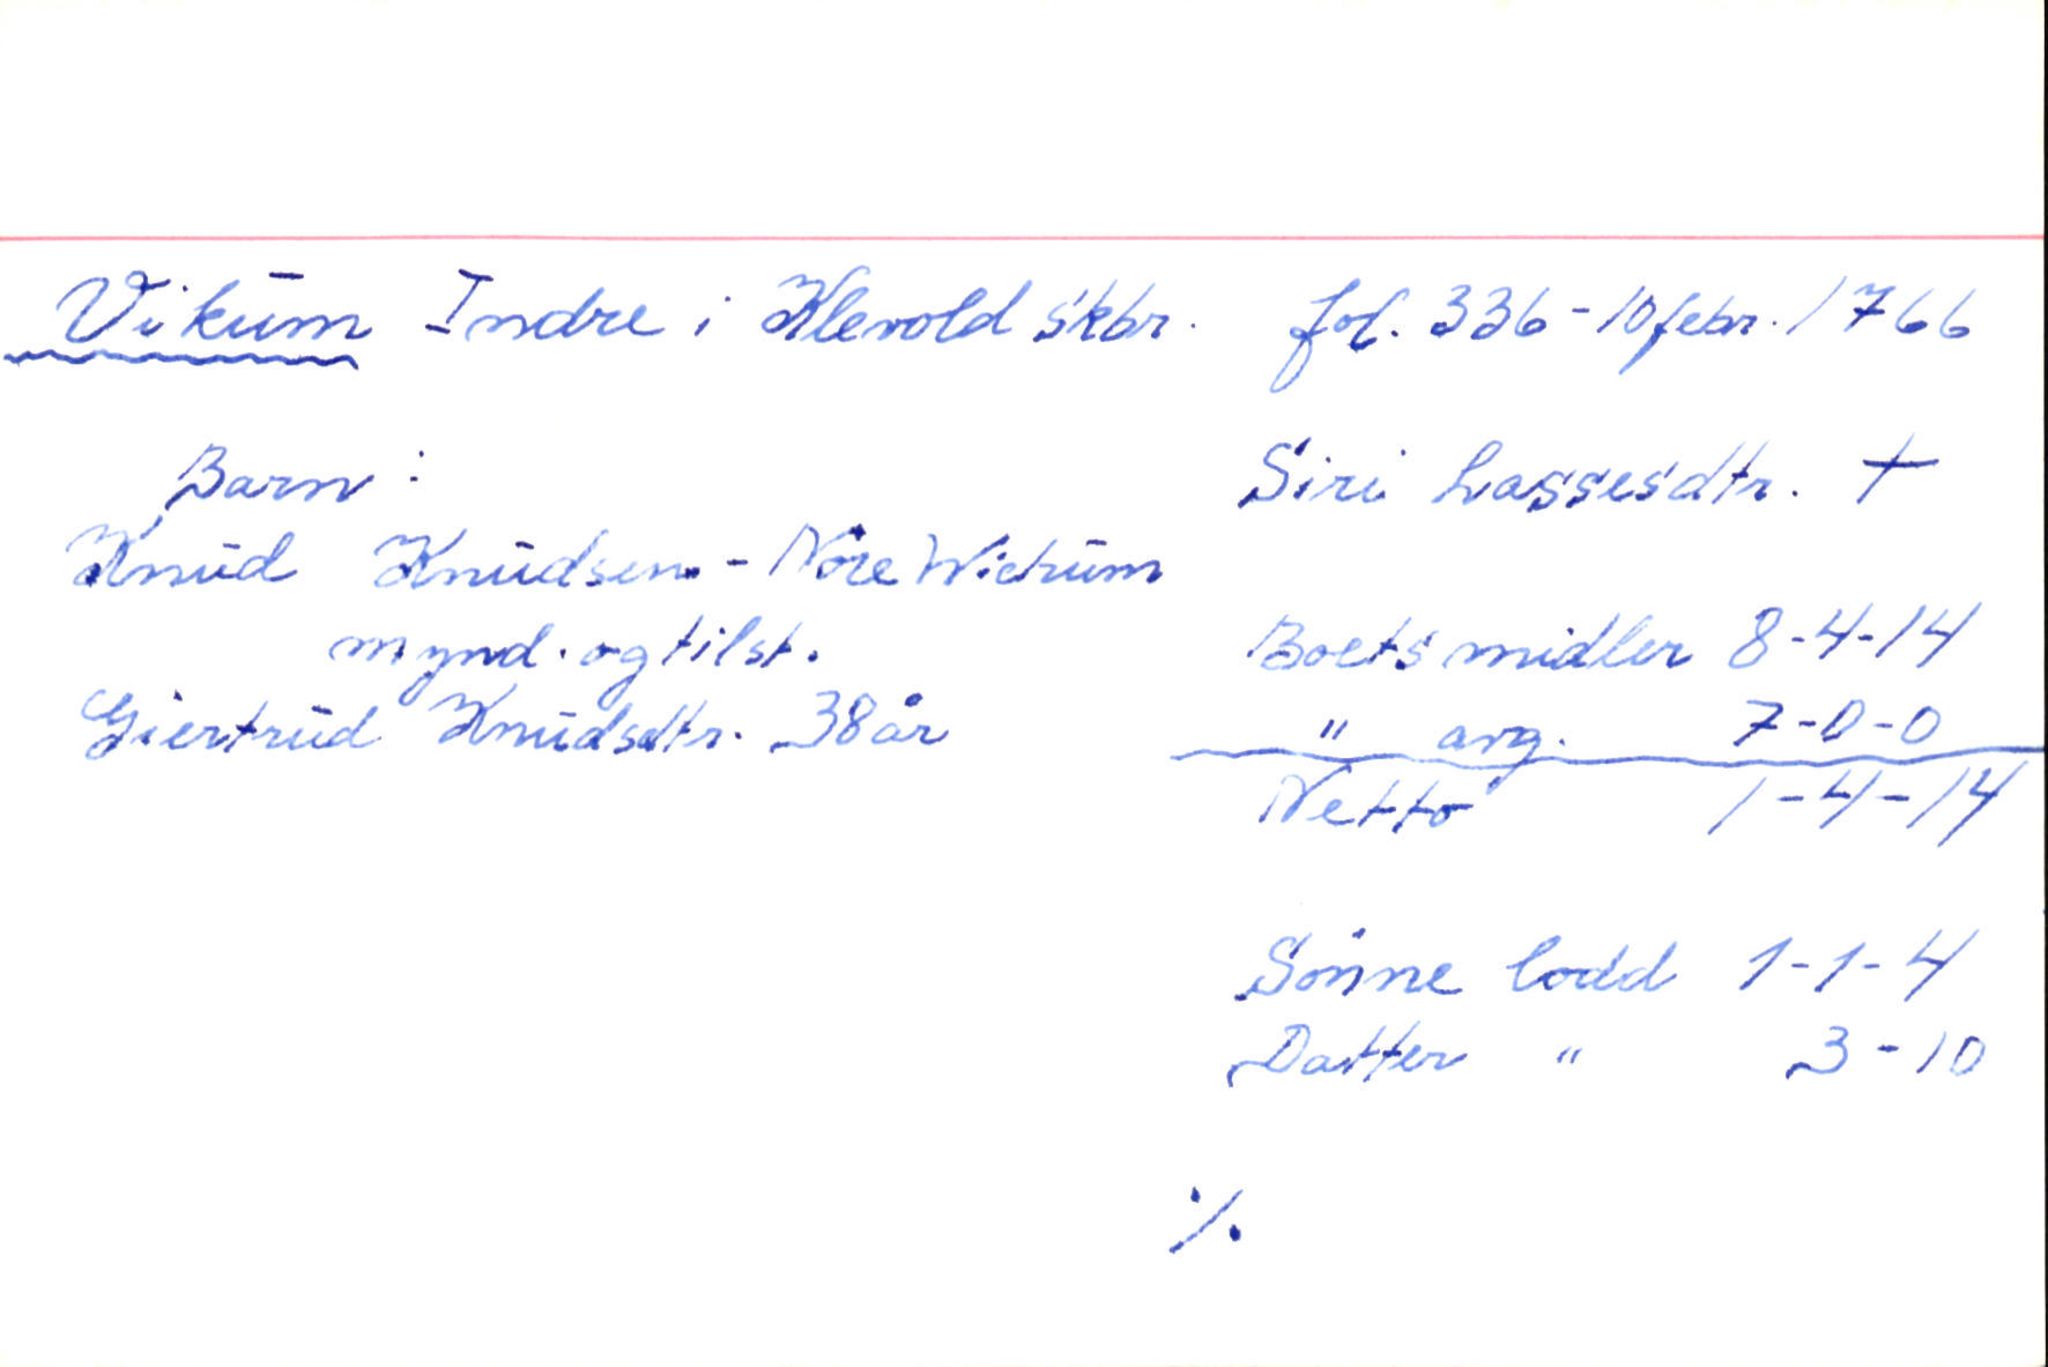 Vikum Indre i Klevold skbr. fol. 336 - 10 febr. 1766
Barn:
Knud Knudsen. - Nöre Wichum
mynd. og tilst.
Giertrud Knudsdtr. 38 år
Siri Lassesdtr. +
Boets midler 8-4-14
" avg. 7-0-0
Netto 1-4-14
Sönne lodd 1-1-4
Datter " 3-10
%